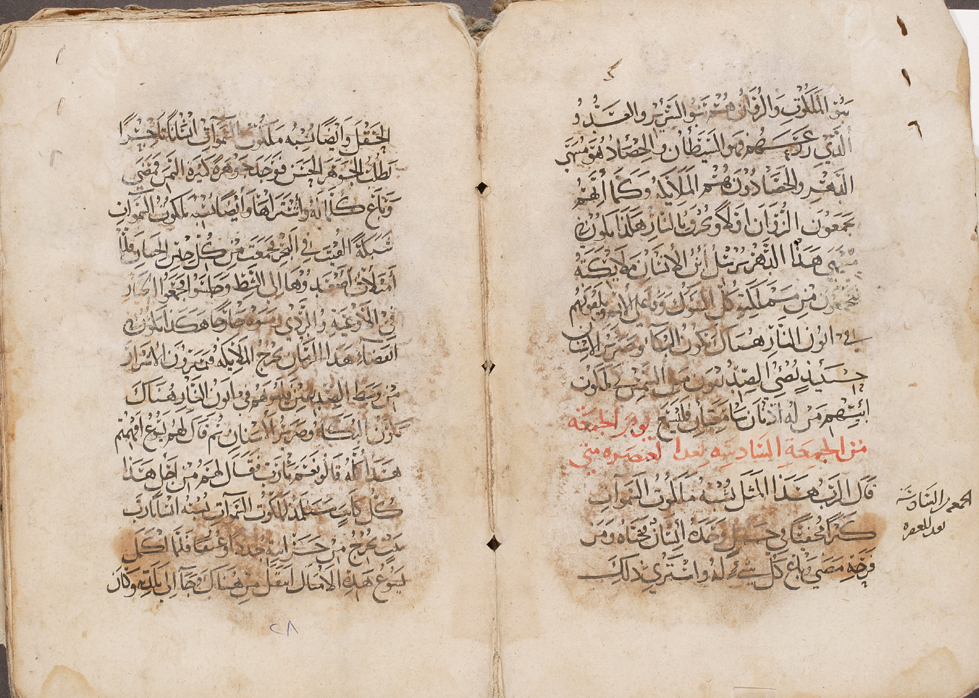 بنو الملكوت والزوان هم بنو الشرير والعدو
الذي زرعهم هو الشيطان والحصاد هو منتهى
الدهر والحصادون هم الملايكه وكما انهم
يجمعون الزوان اولا ويحرق بالنار هكذا يكون في
منتهى هذا الدهر يرسل ابن الانسان ملايكته
فيجمعون من مملكته كل الشكوك وفاعلي الاثم ويلقونهم
في اتون النار هناك يكون البكا وصرير الاسنان
حينيذ يضي الصديقون مثل الشمس في ملكوت
ابيهم من له اذنان سامعتان فليسمع يوم الجمعة
من الجمعة السادسة بعد العنصره متى
قال الرب هذا المثل يشبه ملكوت السموات
كنز مخفى في حقل وجده انسان فخباه ومن
فرحه مضى وباع كل شي له واشترى ذلك
الجمعه السادسة
بعد العنصره
الحقل وايضا يشبه ملكوت السموات انسانا تاجرا
يطلب الجوهر الحسن فوجد جوهرة كثيرة الثمن فمضى
وباع كلما له واشتراها وايضا يشبه ملكوت السموات
شبكة القيت في البحر فجمعت من كل جنس فلما
امتلات اصعدوها الى الشط وجلسوا فجمعوا الخيار
في الاوعية والردي رموه خارجا هكذا يكون في
انقضاء هذا الزمان تخرج الملايكه فيميزون الاشرار
من وسط الصديقين ويلقوهم في اتون النار هناك
يكون البكاء وصرير الاسنان ثم قال لهم يسوع افهمتم
هذا كله قالوا نعم يا رب فقال لهم من اجل هذا
كل كاتب يتلمذ لملكوت السموات يشبه انسانا رب
بيت يخرج من كنزه جددا وعتقا فلما اكمل
يسوع هذه الامثال انتقل من هناك وجا الى بلدته وكان
٢٨